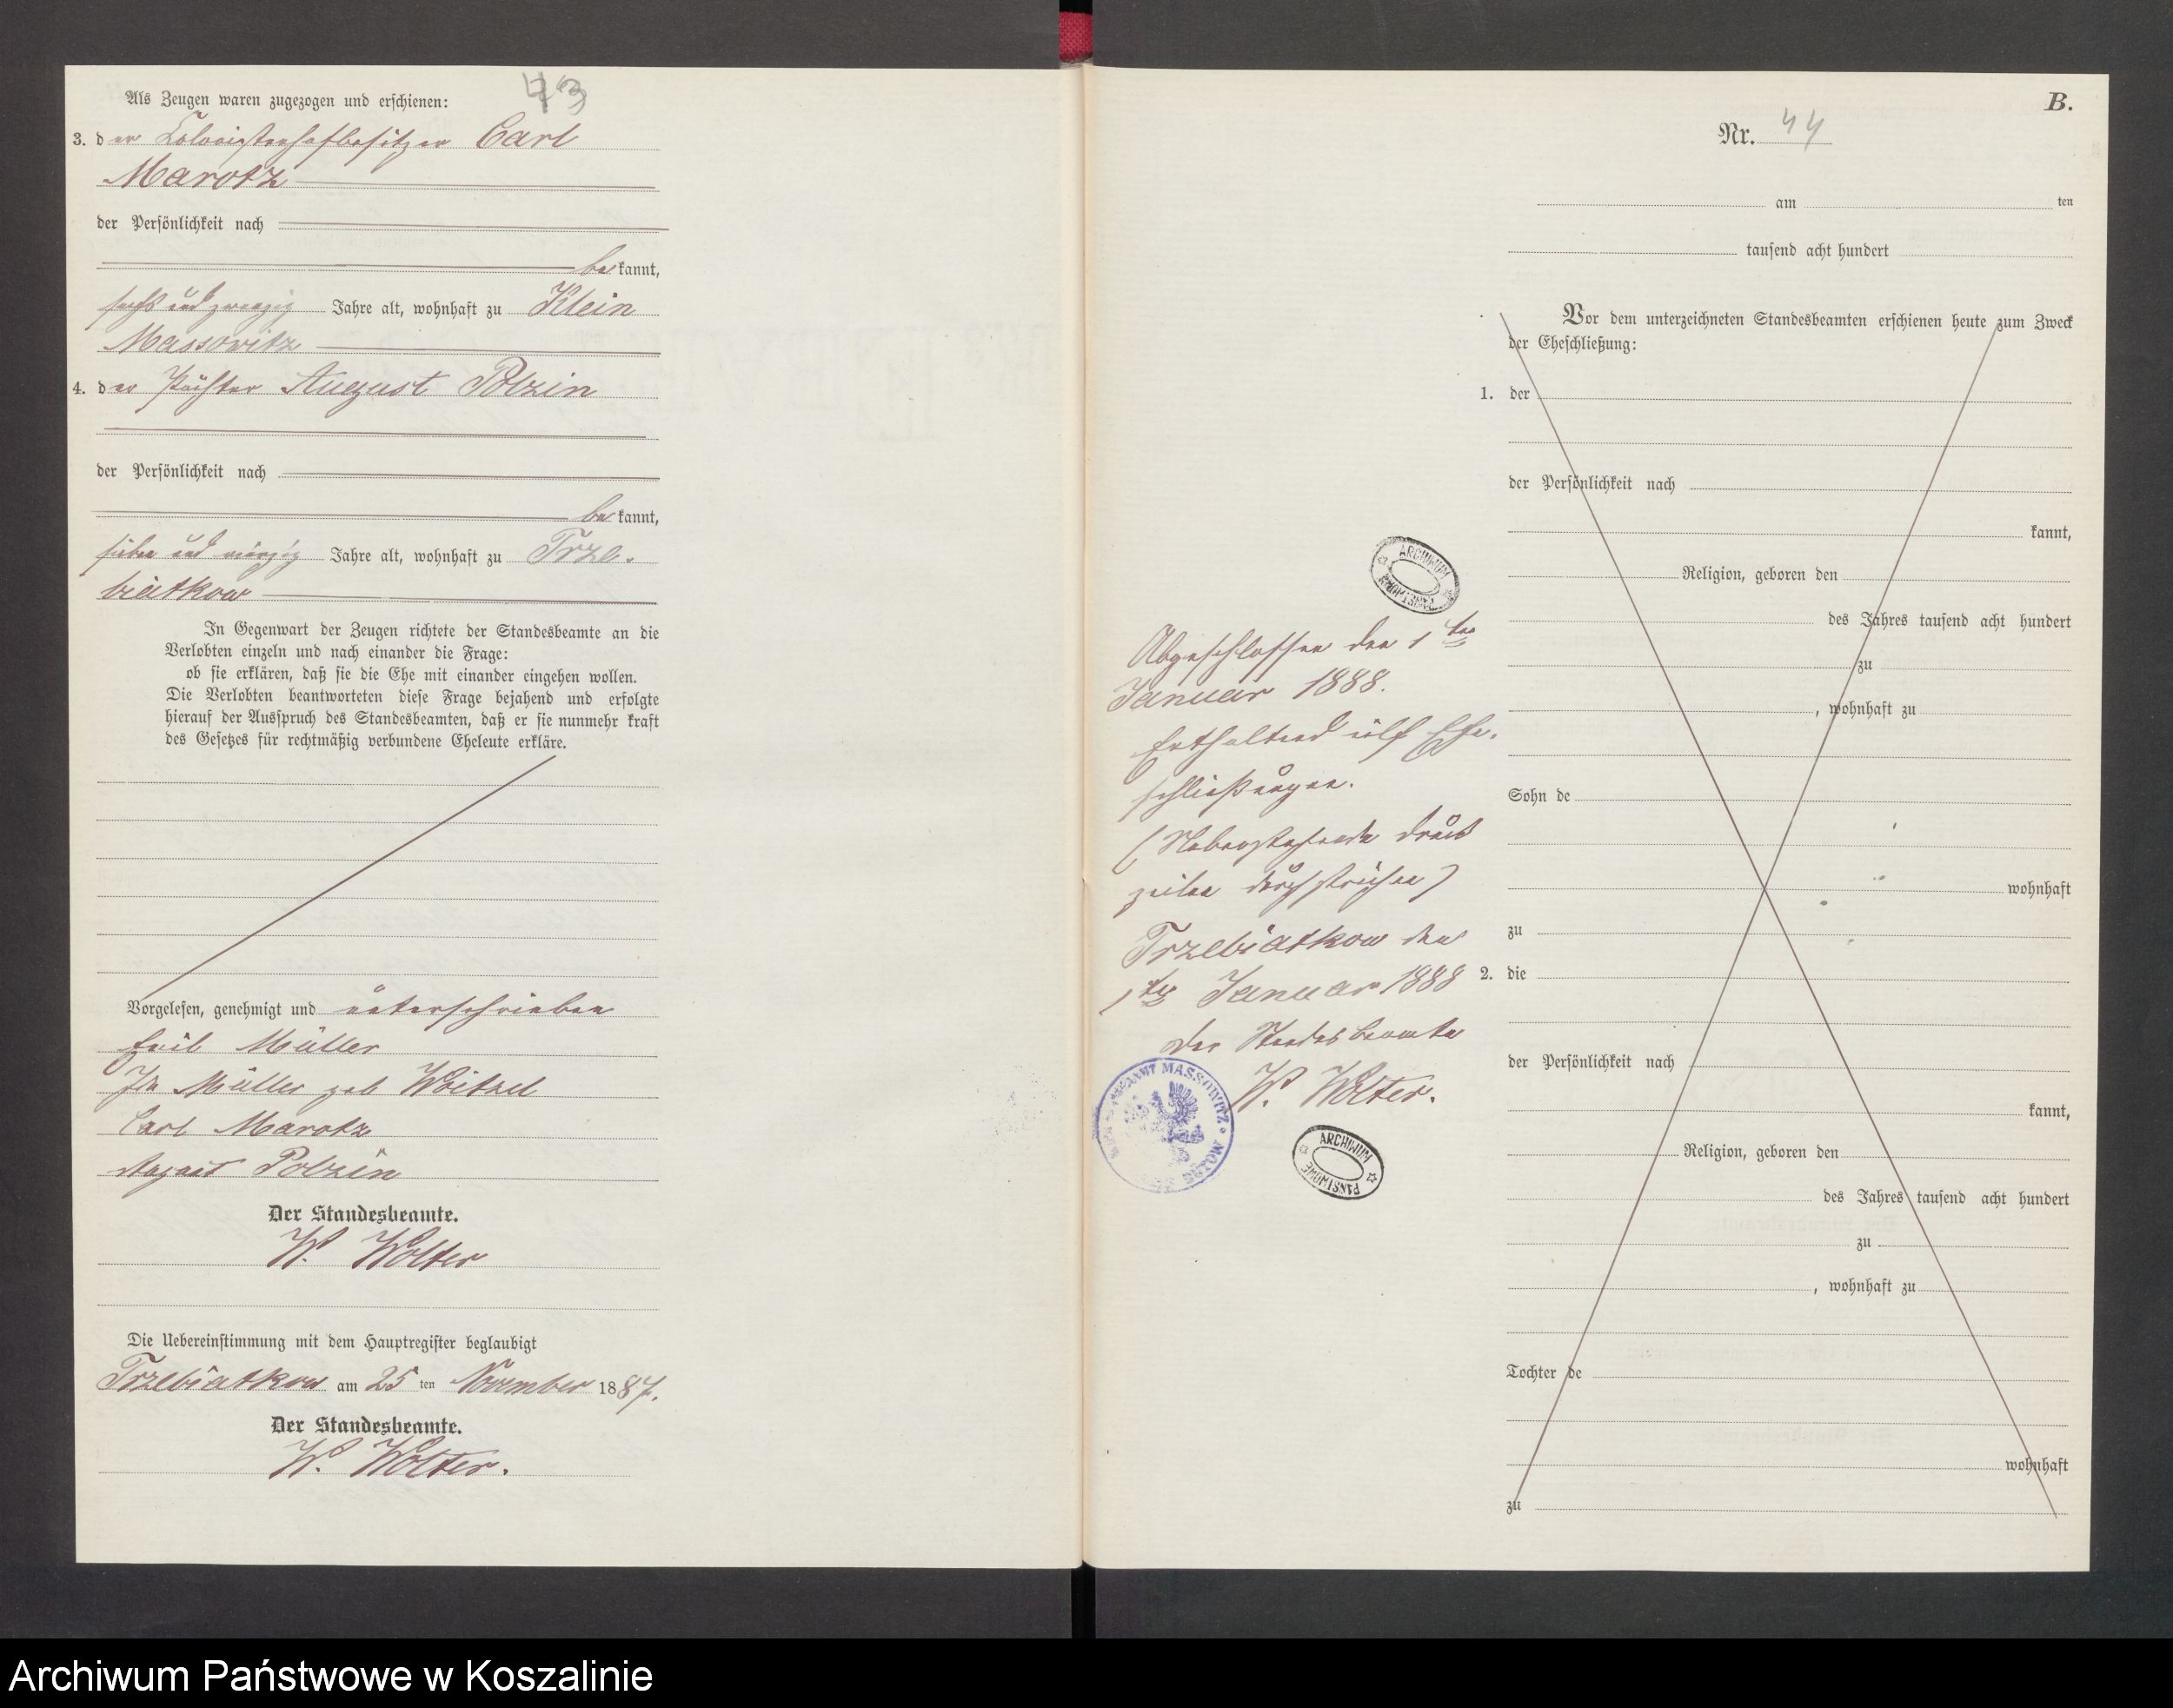 43
Als Zeugen waren zugezogen und erschienen:
3. der Kolonistenhofbesitzer Carl
Marotz
der Persönlichkeit nach
bekannt,
sechs und zwanzig Jahre alt, wohnhaft zu Klein
Massowitz
4. der Pächter August Polzin
der Persönlichkeit nach
bekannt,
sieben und vierzig Jahre alt, wohnhaft zu Trze-
biatkow
In Gegenwart der Zeugen richtete der Standesbeamte an die
Verlobten einzeln und nach einander die Frage:
ob sie erklären, daß sie die Ehe mit einander eingehen wollen.
Die Verlobten beantworteten diese Frage bejahend und erfolgte
hierauf der Ausspruch des Standesbeamten, daß er sie nunmehr kraft
des Gesetzes für rechtmäßig verbundene Eheleute erkläre.
Vorgelesen, genehmigt und unterschrieben
Emil Müller
Ida Müller geb Woitzel
Carl Marotz
August Polzin
Der Standesbeamte.
W. Wolter
Die Uebereinstimmung mit dem Hauptregister beglaubigt
Trzebiatkow am 25 ten November 1887.
Der Standesbeamte.
W. Wolter.
ARCHIWUM PAŃSTWOWE
Abgeschlossen den 1ten
Januar 1888.
Enthaltend elf Ehe-
schließungen.
(Nebenstehende Druck
zeilen durchstrichen)
Trzebiatkow den
1ten Januar 1888
Der Standesbeamte
W. Wolter.
MASSOWITZ
ARCHIWUM PAŃSTWOWE
B.
Nr. 44
am ten
tausend acht hundert
Vor dem unterzeichneten Standesbeamten erschienen heute zum Zweck
der Eheschließung:
1. der
der Persönlichkeit nach
kannt,
Religion, geboren den
des Jahres tausend acht hundert
zu
, wohnhaft zu
Sohn de
wohnhaft
zu
2. die
der Persönlichkeit nach
kannt,
Religion, geboren den
des Jahres tausend acht hundert
zu
, wohnhaft zu
Tochter de
wohnhaft
zu
Archiwum Państwowe w Koszalinie